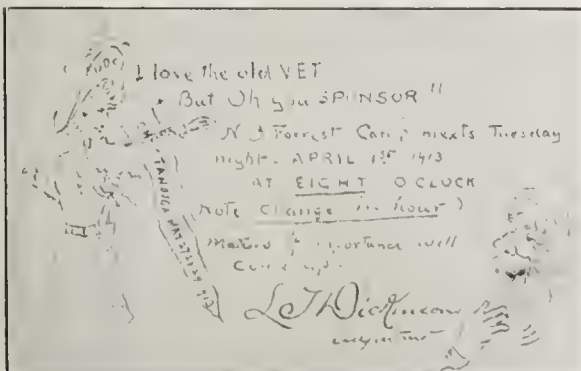 I love the old VET
But Oh you SPONSOR !!
N B Forrest Camp meets Tuesday
night. APRIL 1ST 1913
AT EIGHT O'CLOCK
Note Change in hour)
Matters of importance will
Come up.
L T Dickinson